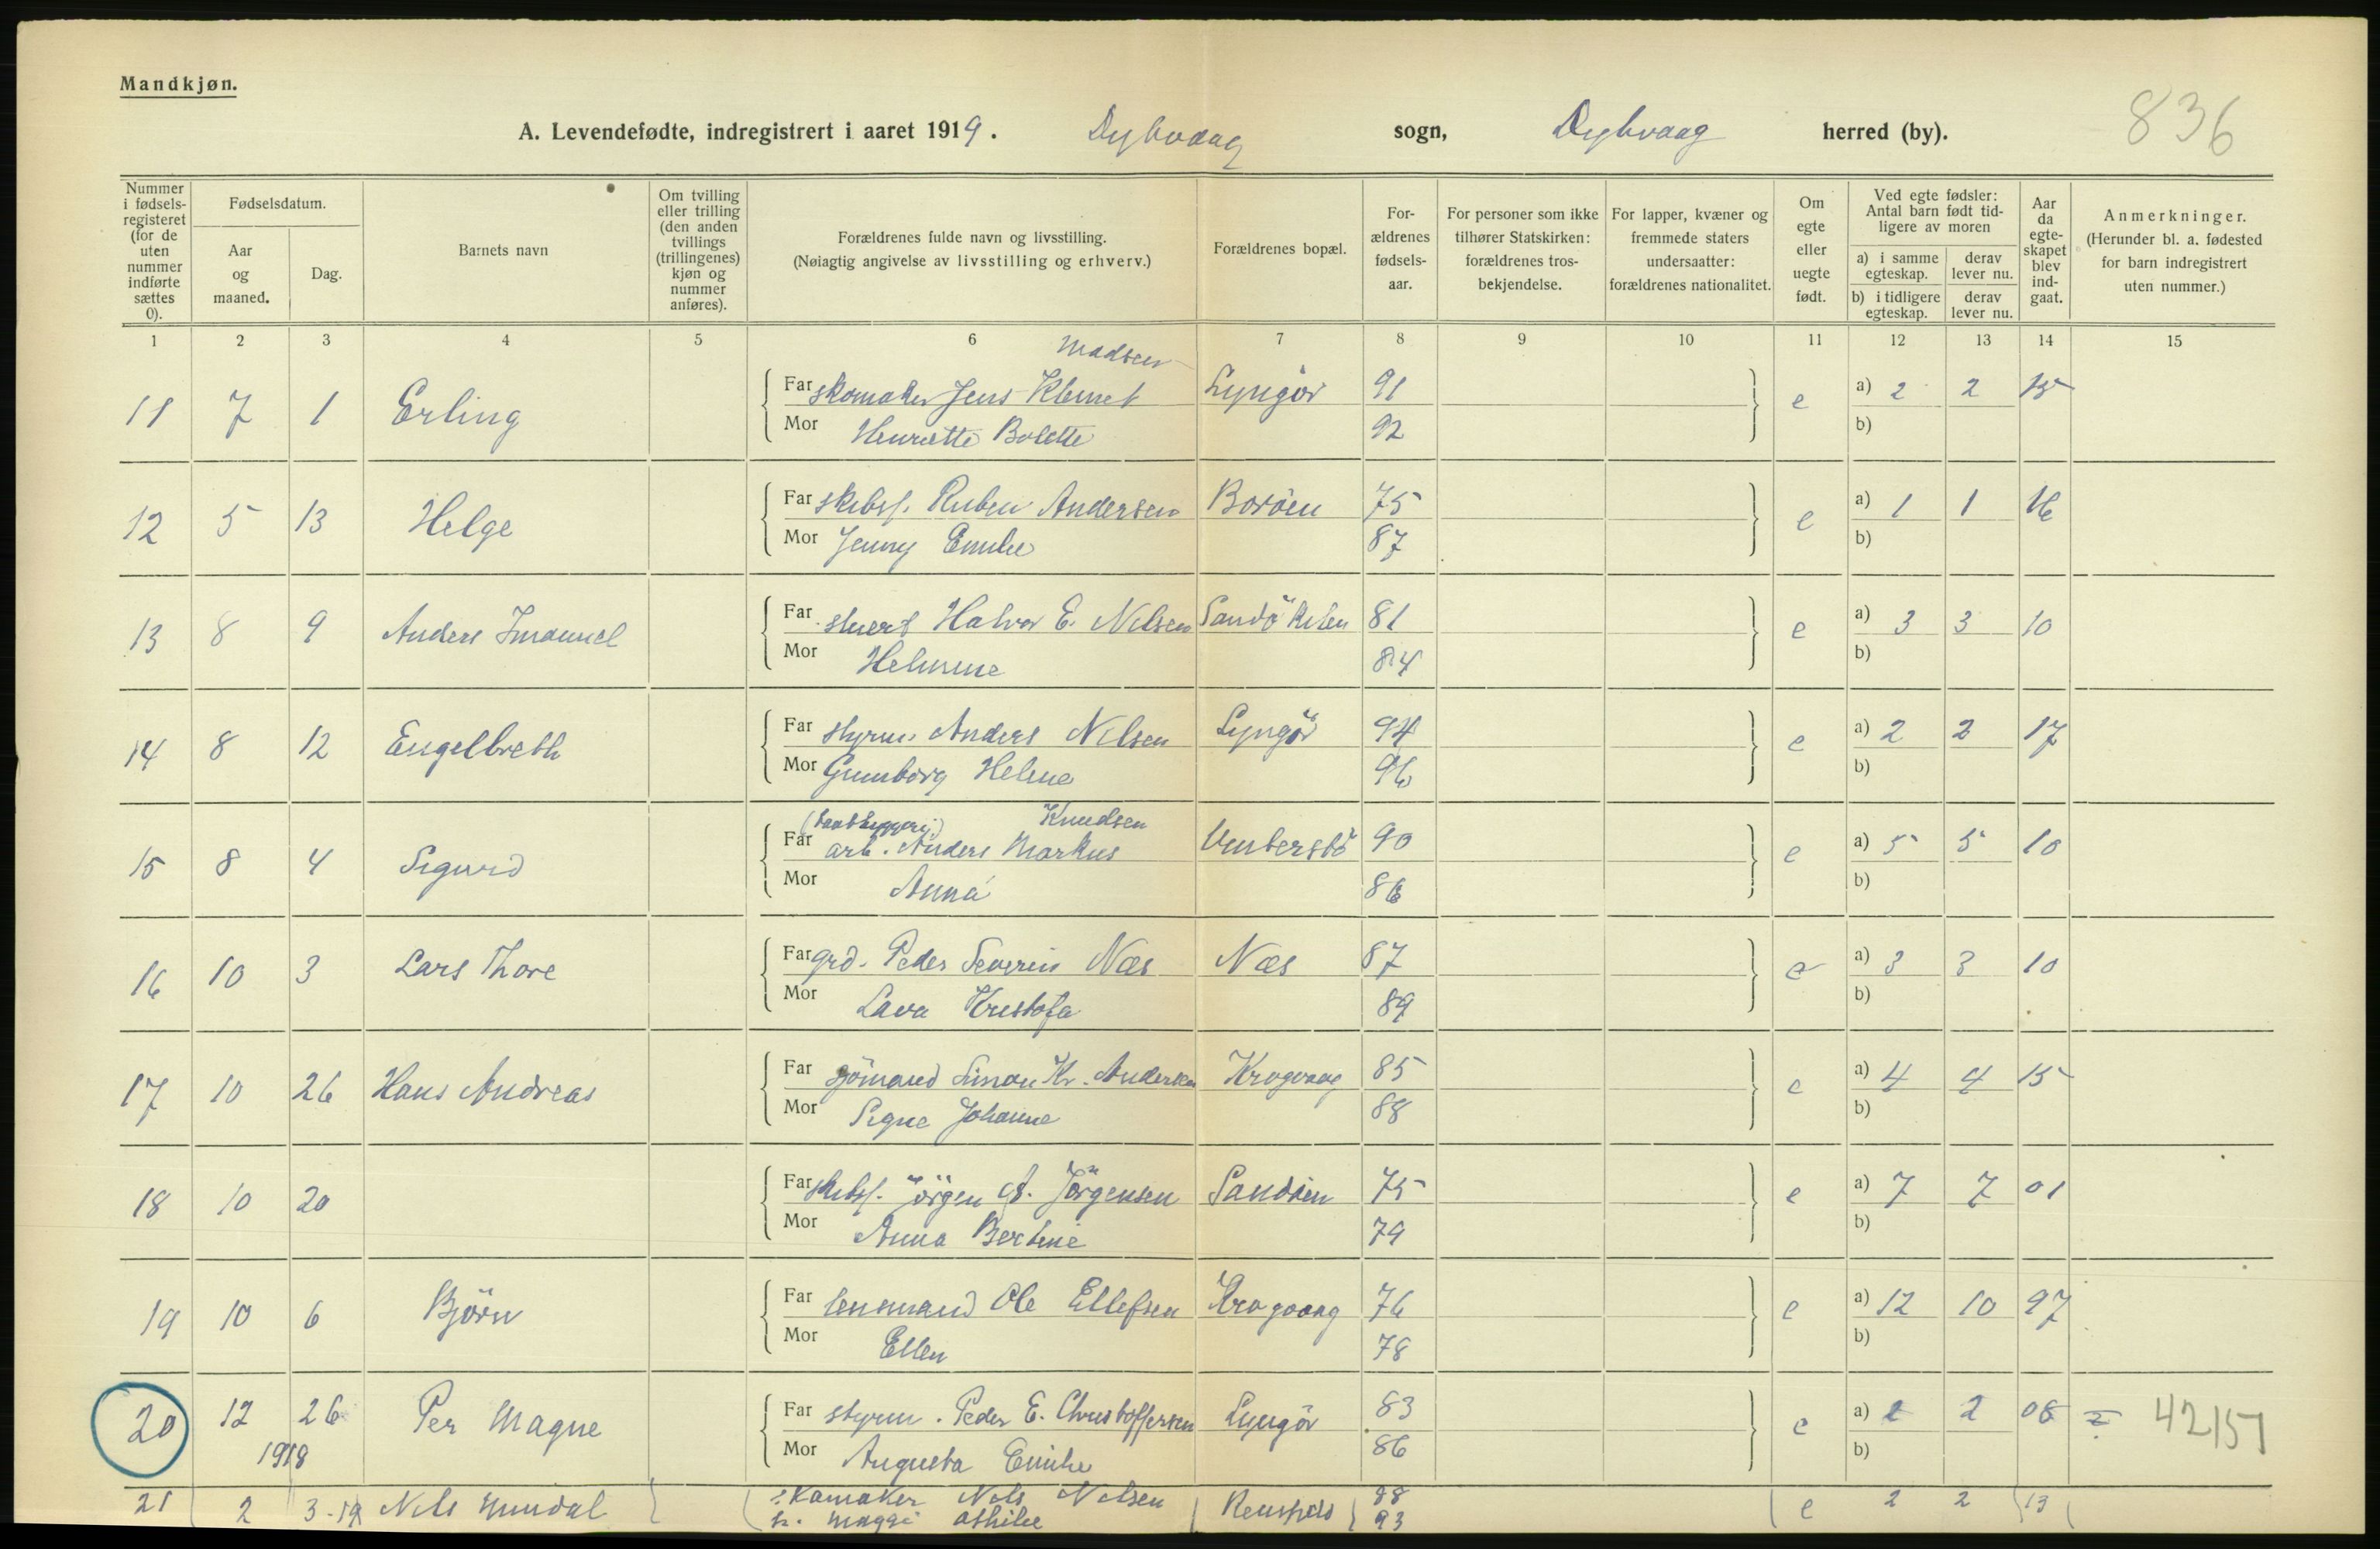 Mandkjøn.
A. Levendefødte, indregistrert i aaret 1919. Dybvaag sogn, Dybvaag herred (by). 836
Nummer i fødselsregisteret (for de uten nummer indførte sættes 0).
Fødselsdatum.
Aar og maaned.
Dag.
Barnets navn
Om tvilling eller trilling (den anden tvillings (trillingenes) kjøn og nummer anføres).
Forældrenes fulde navn og livsstilling.
(Nøiagtig angivelse av livsstilling og erhverv.)
Forældrenes bopæl.
For-ældrenes fødsels-aar.
For personer som ikke tilhører Statskirken: forældrenes tros-bekjendelse.
For lapper, kvæner og fremmede staters undersaatter: forældrenes nationalitet.
Om egte eller uegte født.
Ved egte fødsler: Antal barn født tid-ligere av moren
a) i samme egteskap.
derav lever nu.
b) i tidligere egteskap.
derav lever nu.
Aar da egte-skapet blev ind-gaat.
Anmerkninger.
(Herunder bl. a. fødested for barn indregistrert uten nummer.)
1 2 3 4 5 6 7 8 9 10 11 12 13 14 15
Madsen
11 7 1 Erling Far skomaker Jens Klemet Lyngör 91 e a) 2 2 15
Mor Henriette Bolette 92 b)
12 5 13 Helge Far skibsf. Ruben Andersen Boröen 75 e a) 1 1 16
Mor Jenny Emilie 87 b)
13 8 9 Anders Imanuel Far stuert Halvor E. Nilsen Sandökilen 81 e a) 3 3 10
Mor Helmine 84 b)
14 8 12 Engelbreth Far styrm. Anders Nilsen Lyngör 94 e a) 2 2 17
Mor Gunborg Helene 96 b)
(baatbyggeri) Knudsen
15 8 4 Sigurd Far arb. Anders Markus 90 e a) 5 5 10
Mor Anna 86 b)
16 10 3 Lars Thore Far grd. Peder Severin Næs Næs 87 e a) 3 3 10
Mor Lava Kristofa 89 b)
17 10 26 Hans Andreas Far sjömand Simon Kr. Andersen Krogvaag 85 e a) 4 4 15
Mor Signe Johanne 88 b)
18 10 20 Far skibsf. Jörgen A. Jörgensen Sandöen 75 e a) 7 7 01
Mor Anna Bertine 79 b)
19 10 6 Björn Far lensmand Ole Ellefsen Krogvaag 76 e a) 12 10 97
Mor Ellen 78 b)
20 12 26 Per Magne Far styrm. Peder E. Christoffersen Lyngör 83 e a) 2 2 08 42151
1918 Mor Augusta Emilie 86 b)
21 2 3-19 Nils Skomaker Nils Nilsen 88 e 2 2 13
h. Maggi Othilie 93